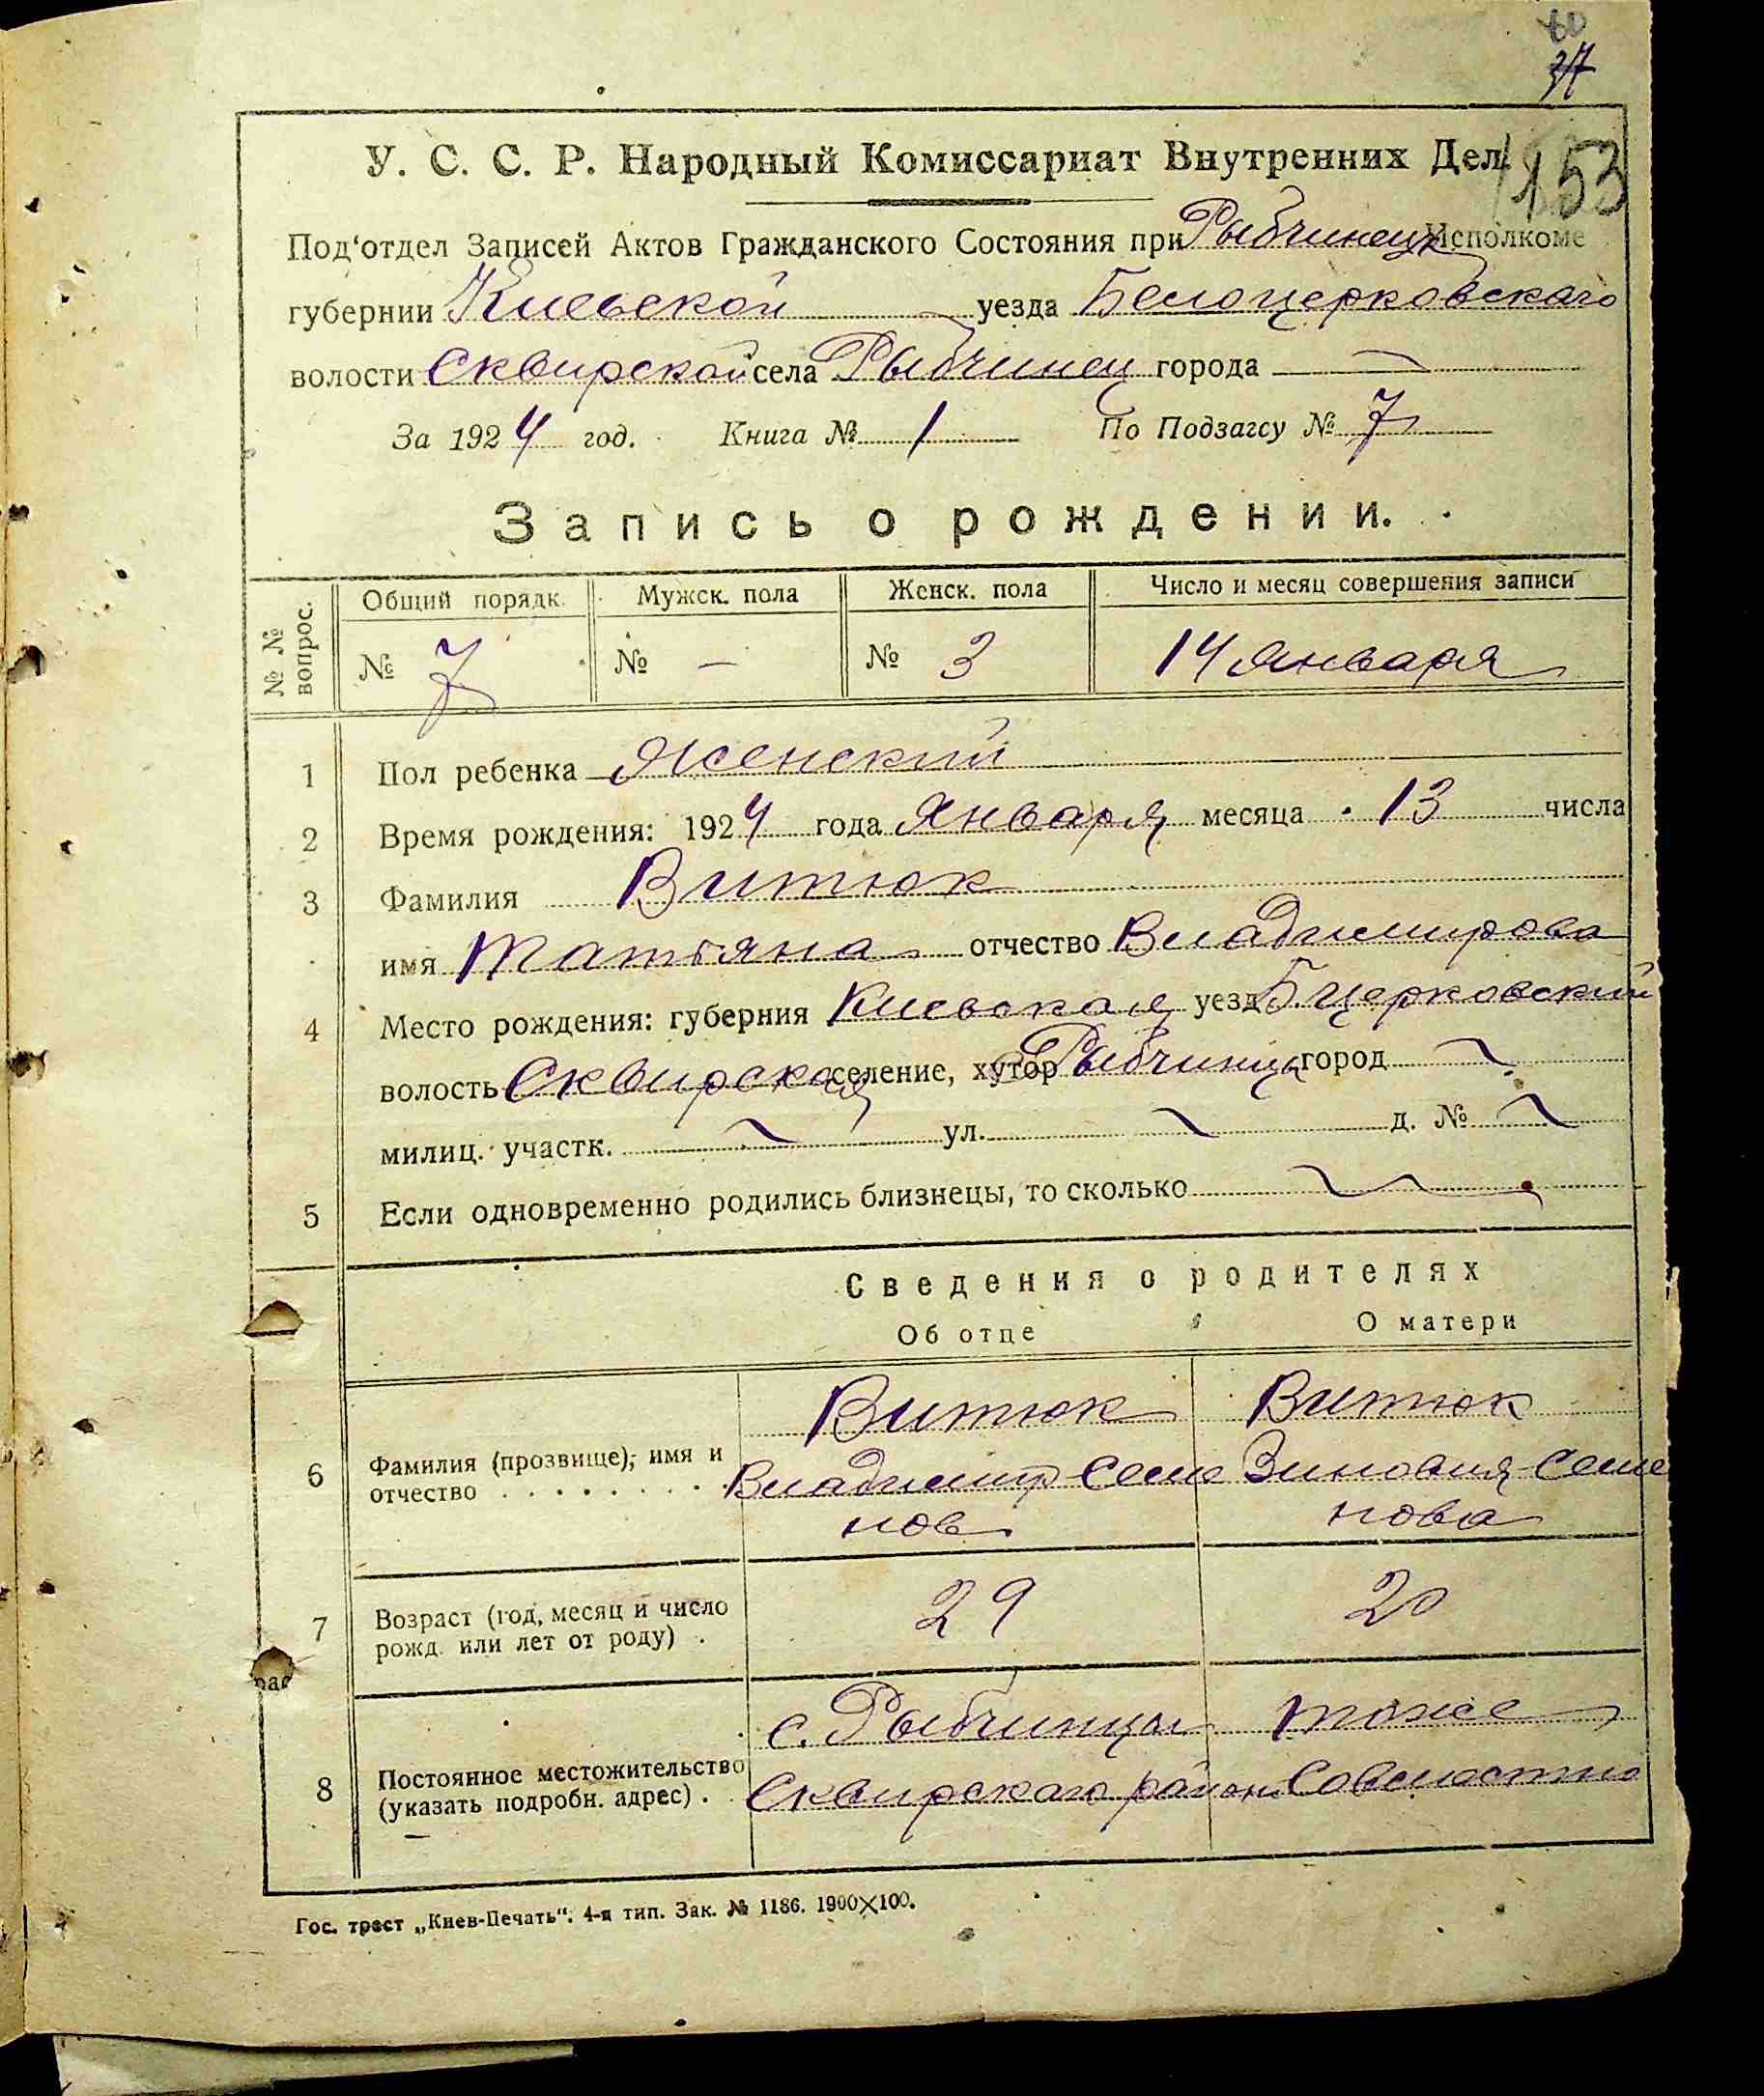 37
153
У. С. С. Р. Народный Комиссариат Внутренних Дел
Под‘отдел Записей Актов Гражданского Состояния при Рыбчинецк Исполкоме
губернии Киевской уезда Белоцерковскаго
волости Сквирской села Рыбчинец города —
За 1924 год. Книга № 1 По Подзагсу № 7
Запись о рождении.
№ № вопрос. Общий порядк. Мужск. пола Женск. пола Число и месяц совершения записи
№ 7 № — № 3 14 Января
1 Пол ребенка Женский
2 Время рождения: 1924 года Января месяца 13 числа
3 Фамилия Витюк
имя Татьяна отчество Владимирова
4 Место рождения: губерния Киевская уезд Б. Церковский
волость Сквирская селение, хутор Рыбчинцы город ~
милиц. участк. ~ ул. ~ д. № ~
5 Если одновременно родились близнецы, то сколько ~
Сведения о родителях
Об отце О матери
Витюк Витюк
6 Фамилия (прозвище), имя и отчество . . . . . . . . . Владимир Семе Зиновия Семе
нов нова
7 Возраст (год, месяц и число рожд. или лет от роду) . 29 20
с. Рыбчинцы тоже
8 Постоянное местожительство (указать подробн. адрес) . Сквирскаго района Совместно
Гос. трест „Киев-Печать“. 4-я тип. Зак. № 1186. 1900×100.